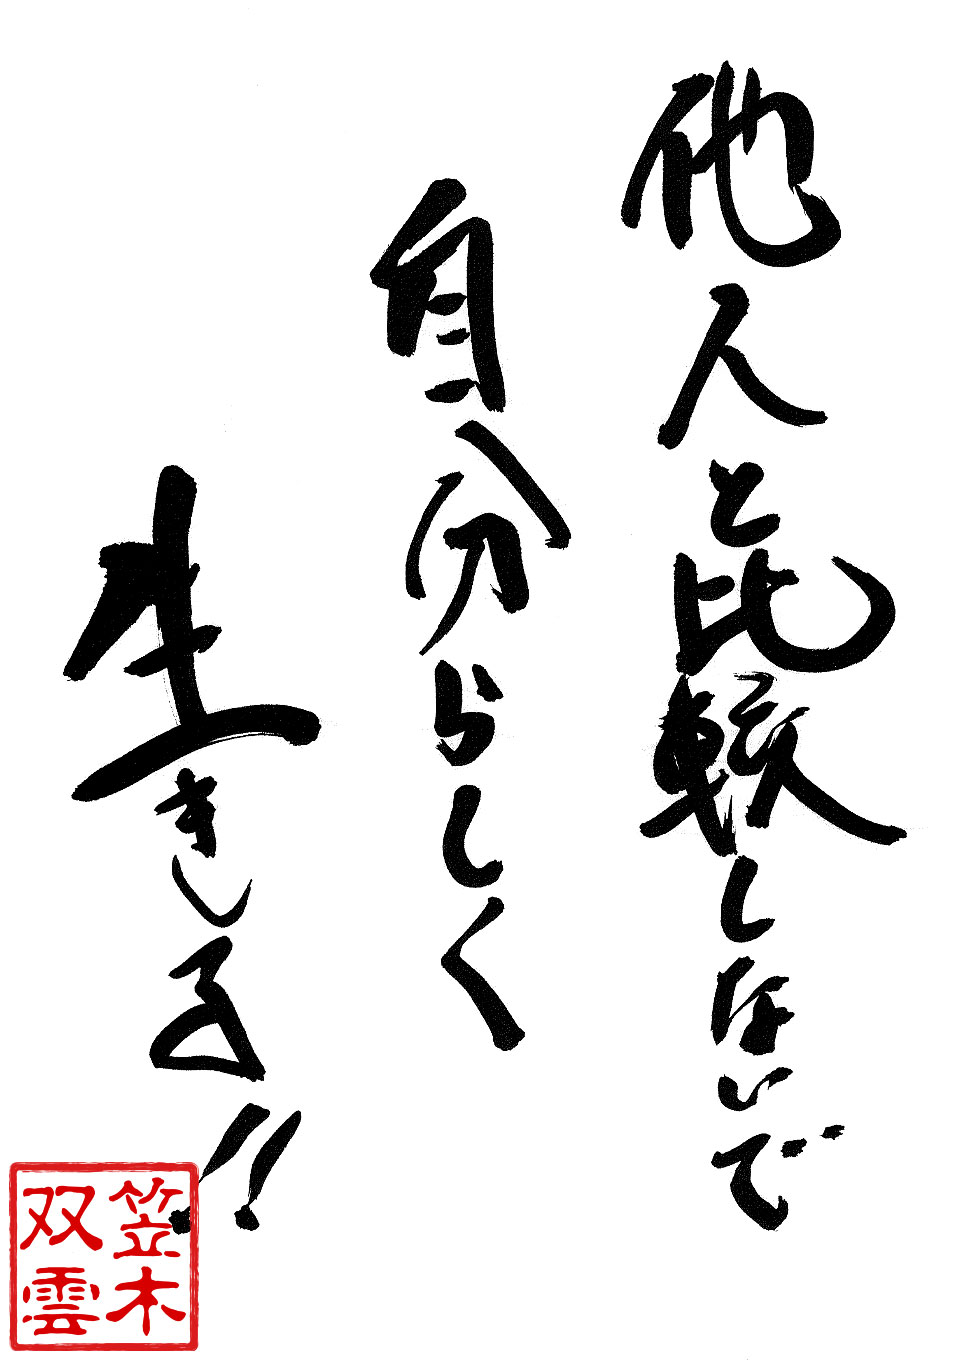 他人と比較しないで
自分らしく
生きる!!
笠木
双雲